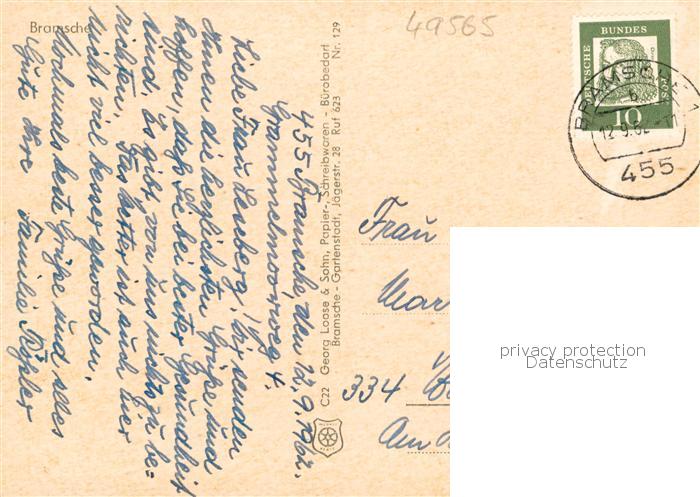 Bramsche
49565
DEUTSCHE BUNDESPOST
10
BRAMSCHE
12.9.62
455
455 Bramsche, den 12.9.1962.
Grammelmoorweg 4.
Liebe Frau Wir senden
Ihnen die herzlichsten Grüße und
hoffen, daß Sie bei bester Gesundheit
sind. Es gibt von uns nichts zu be-
richten. Das Wetter ist auch hier
nicht viel besser geworden.
Nochmals beste Grüße und alles
Gute Ihre Familie
C22 Georg Loose & Sohn, Papier-, Schreibwaren - Bürobedarf
Bramsche - Gartenstadt, Jägerstr. 28 Ruf 623 Nr. 129
Frau
Mar
334
Am
privacy protection
Datenschutz